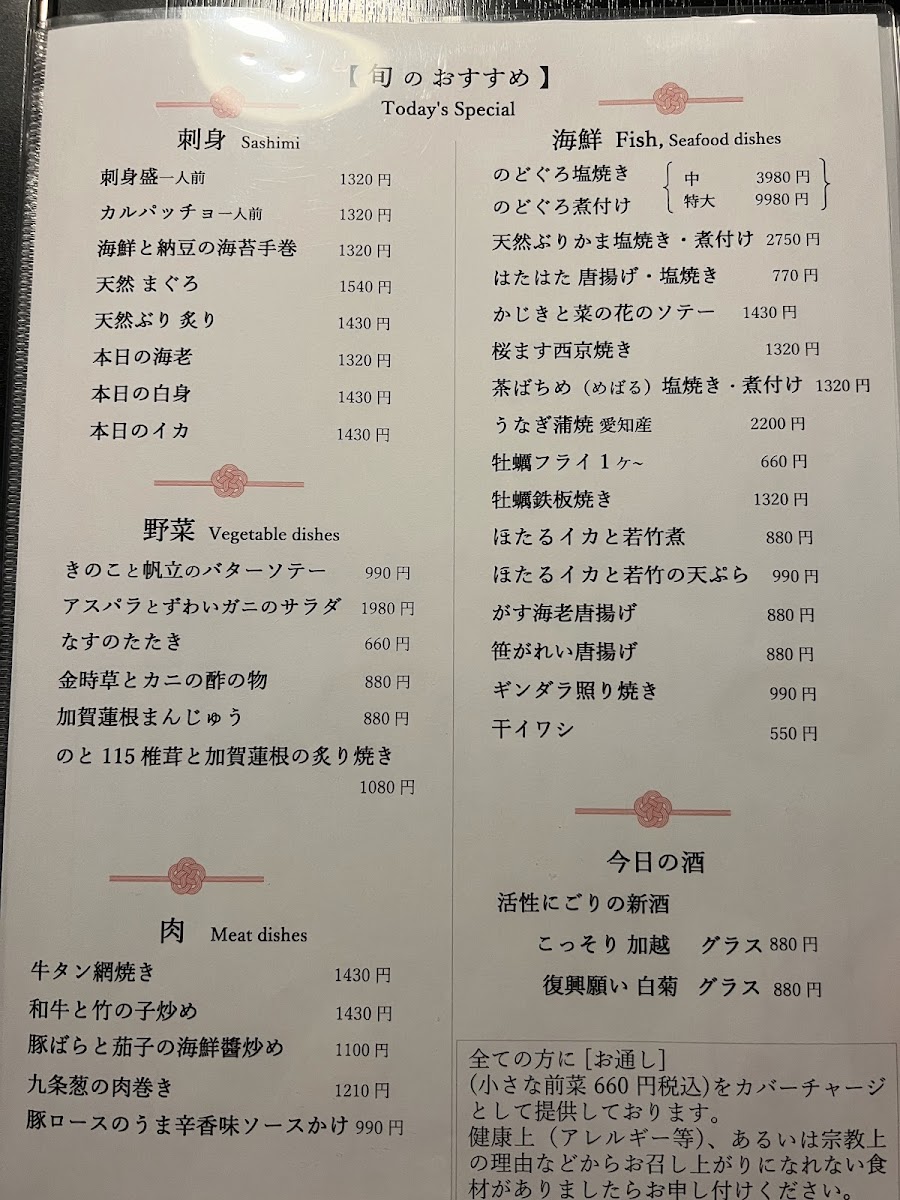 【 旬 の おすすめ 】
Today's Special
刺身 Sashimi
刺身盛一人前 1320 円
カルパッチョ一人前 1320 円
海鮮と納豆の海苔手巻 1320 円
天然 まぐろ 1540 円
天然ぶり 炙り 1430 円
本日の海老 1320 円
本日の白身 1430 円
本日のイカ 1430 円
野菜 Vegetable dishes
きのこと帆立のバターソテー 990 円
アスパラとずわいガニのサラダ 1980 円
なすのたたき 660 円
金時草とカニの酢の物 880 円
加賀蓮根まんじゅう 880 円
のと 115 椎茸と加賀蓮根の炙り焼き
1080 円
肉 Meat dishes
牛タン網焼き 1430 円
和牛と竹の子炒め 1430 円
豚ばらと茄子の海鮮醬炒め 1100 円
九条葱の肉巻き 1210 円
豚ロースのうま辛香味ソースかけ 990 円
海鮮 Fish, Seafood dishes
のどぐろ塩焼き 中 3980 円
のどぐろ煮付け 特大 9980 円
天然ぶりかま塩焼き・煮付け 2750 円
はたはた 唐揚げ・塩焼き 770 円
かじきと菜の花のソテー 1430 円
桜ます西京焼き 1320 円
茶ばちめ（めばる）塩焼き・煮付け 1320 円
うなぎ蒲焼 愛知産 2200 円
牡蠣フライ 1 ヶ~ 660 円
牡蠣鉄板焼き 1320 円
ほたるイカと若竹煮 880 円
ほたるイカと若竹の天ぷら 990 円
がす海老唐揚げ 880 円
笹がれい唐揚げ 880 円
ギンダラ照り焼き 990 円
干イワシ 550 円
今日の酒
活性にごりの新酒
こっそり 加越 グラス 880 円
復興願い 白菊 グラス 880 円
全ての方に [お通し]
(小さな前菜 660 円税込)をカバーチャージ
として提供しております。
健康上（アレルギー等）、あるいは宗教上
の理由などからお召し上がりになれない食
材がありましたらお申し付けください。